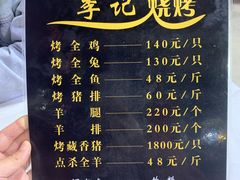 李记烧烤
烤全鸡 140元/只
烤全兔 130元/只
烤全鱼 48元/斤
烤猪排 60元/斤
羊腿 220元/个
羊排 200元/个
烤藏香猪 1800元/只
点杀全羊 48元/斤